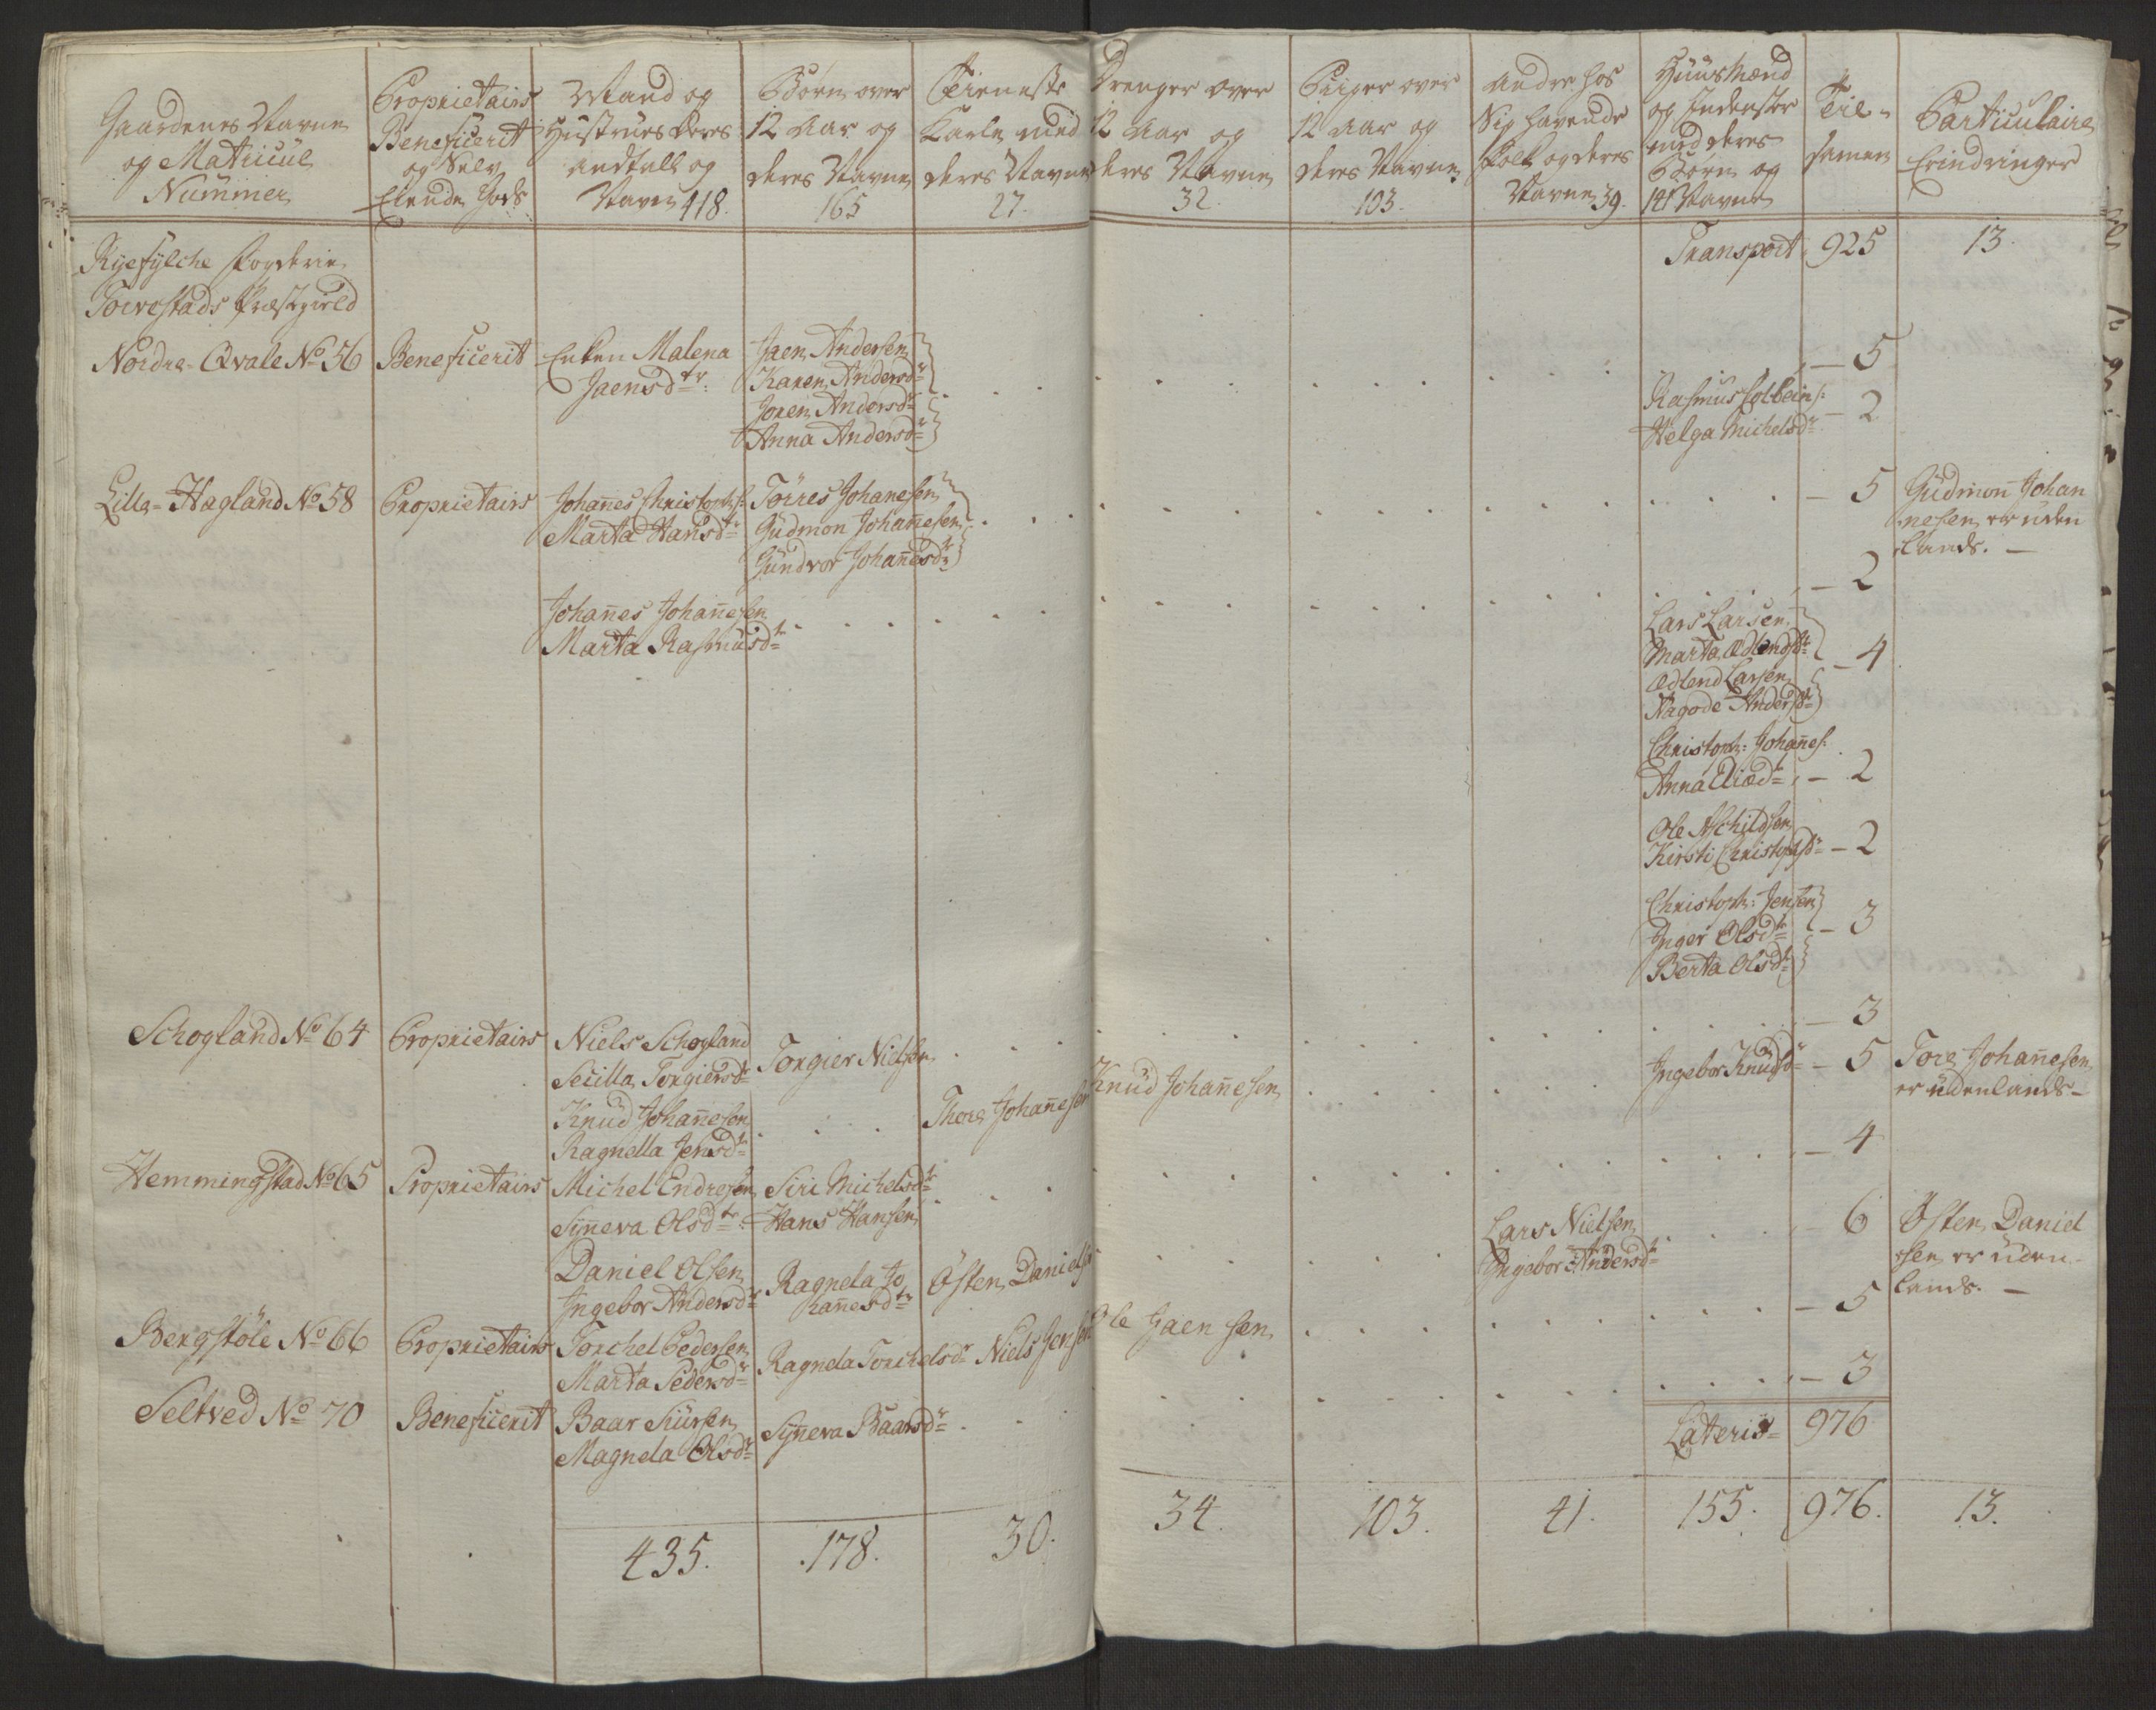 Gaardenes Navne
og Matricul
Nummer
Proprietairs
Beneficerit
og Selv
Eiende Gods
Mand og
Hustrues deres
andtall og
Navne 418.
Børn over
12 Aar og
deres Navne
165
Tieneste
Karle med
deres Navne
27.
Drenger over
12 Aar og
deres Navne
32.
Piiger over
12 Aar og
deres Navne
103.
Andre hos
Sig havende
Folk og deres
Navne 39.
Huusmænd
og Inderster
med deres
Børn og
141 Navne
Til-
samen
Particulaire
Erindringer
Ryefylche Fogderie
Torvestads Præstegield
Transport 925 13.
Nordre-Qvale No 56 Beneficerit
Enken Malena
Jaensdtr:
Jaen Andersen
Karen Andersdr
Joren Andersdr
Anna Andersdr
– 5
Rasmus Colbeins:
Helga Michelsdr – 2
Lille-Hagland No 58 Proprietairs
Johannes Christophs:
Marta Hansdtr
Törres Johanesen
Gudmon Johannesen
Gundvor Johannesdtr
– 5
Gudmon Johan
nesen er uden
lands. –
Johannes Johannesen
Marta Rasmusdtr
– 2
Lars Larsen
Marta Ædlendsdtr
Ædlend Larsen
Nagode Andersdtr
– 4
Christoph: Johannes:
Anna Eliædtr – 2
Ole Aschildsen
Kirsti Christophsdr – 2
Christoph: Jensen
Inger Olsdtr
Berta Olsdtr
– 3
Schogland No 64 Proprietairs
Niels Schogland
Secilla Torgiersdtr
Torgier Nielsen
– 3
Knud Johannesen
Ragnella Jensdtr
Thore Johannesen
Knud Johannesen
Ingebor Knudsdr – 5
Tore Johannesen
er udenlands –
Hemmingstad No 65 Proprietairs
Michel Endresen
Synneva Olsdtr:
Siri Michelsdtr
Hans Hansen
– 4
Daniel Olsen
Ingebor Andersdtr
Ragnela Jo
hannesdtr
Østen Danielsen
Lars Nielsen
Ingebor Andersdtr
– 6
Østen Daniel
sen er uden-
lands. –
Bergstöle No 66 Proprietairs
Torchel Pedersen
Marta Pedersdr
Ragnela Torchelsdr
Niels Jensen
Ole Jaensen
– 5
Seltved No 70 Beneficerit
Baar Siursen
Magnela Olsdr
Synneva Baarsdr
– 3
Lateris= 976
435. 178. 30. 34. 103. 41. 155. 976. 13.